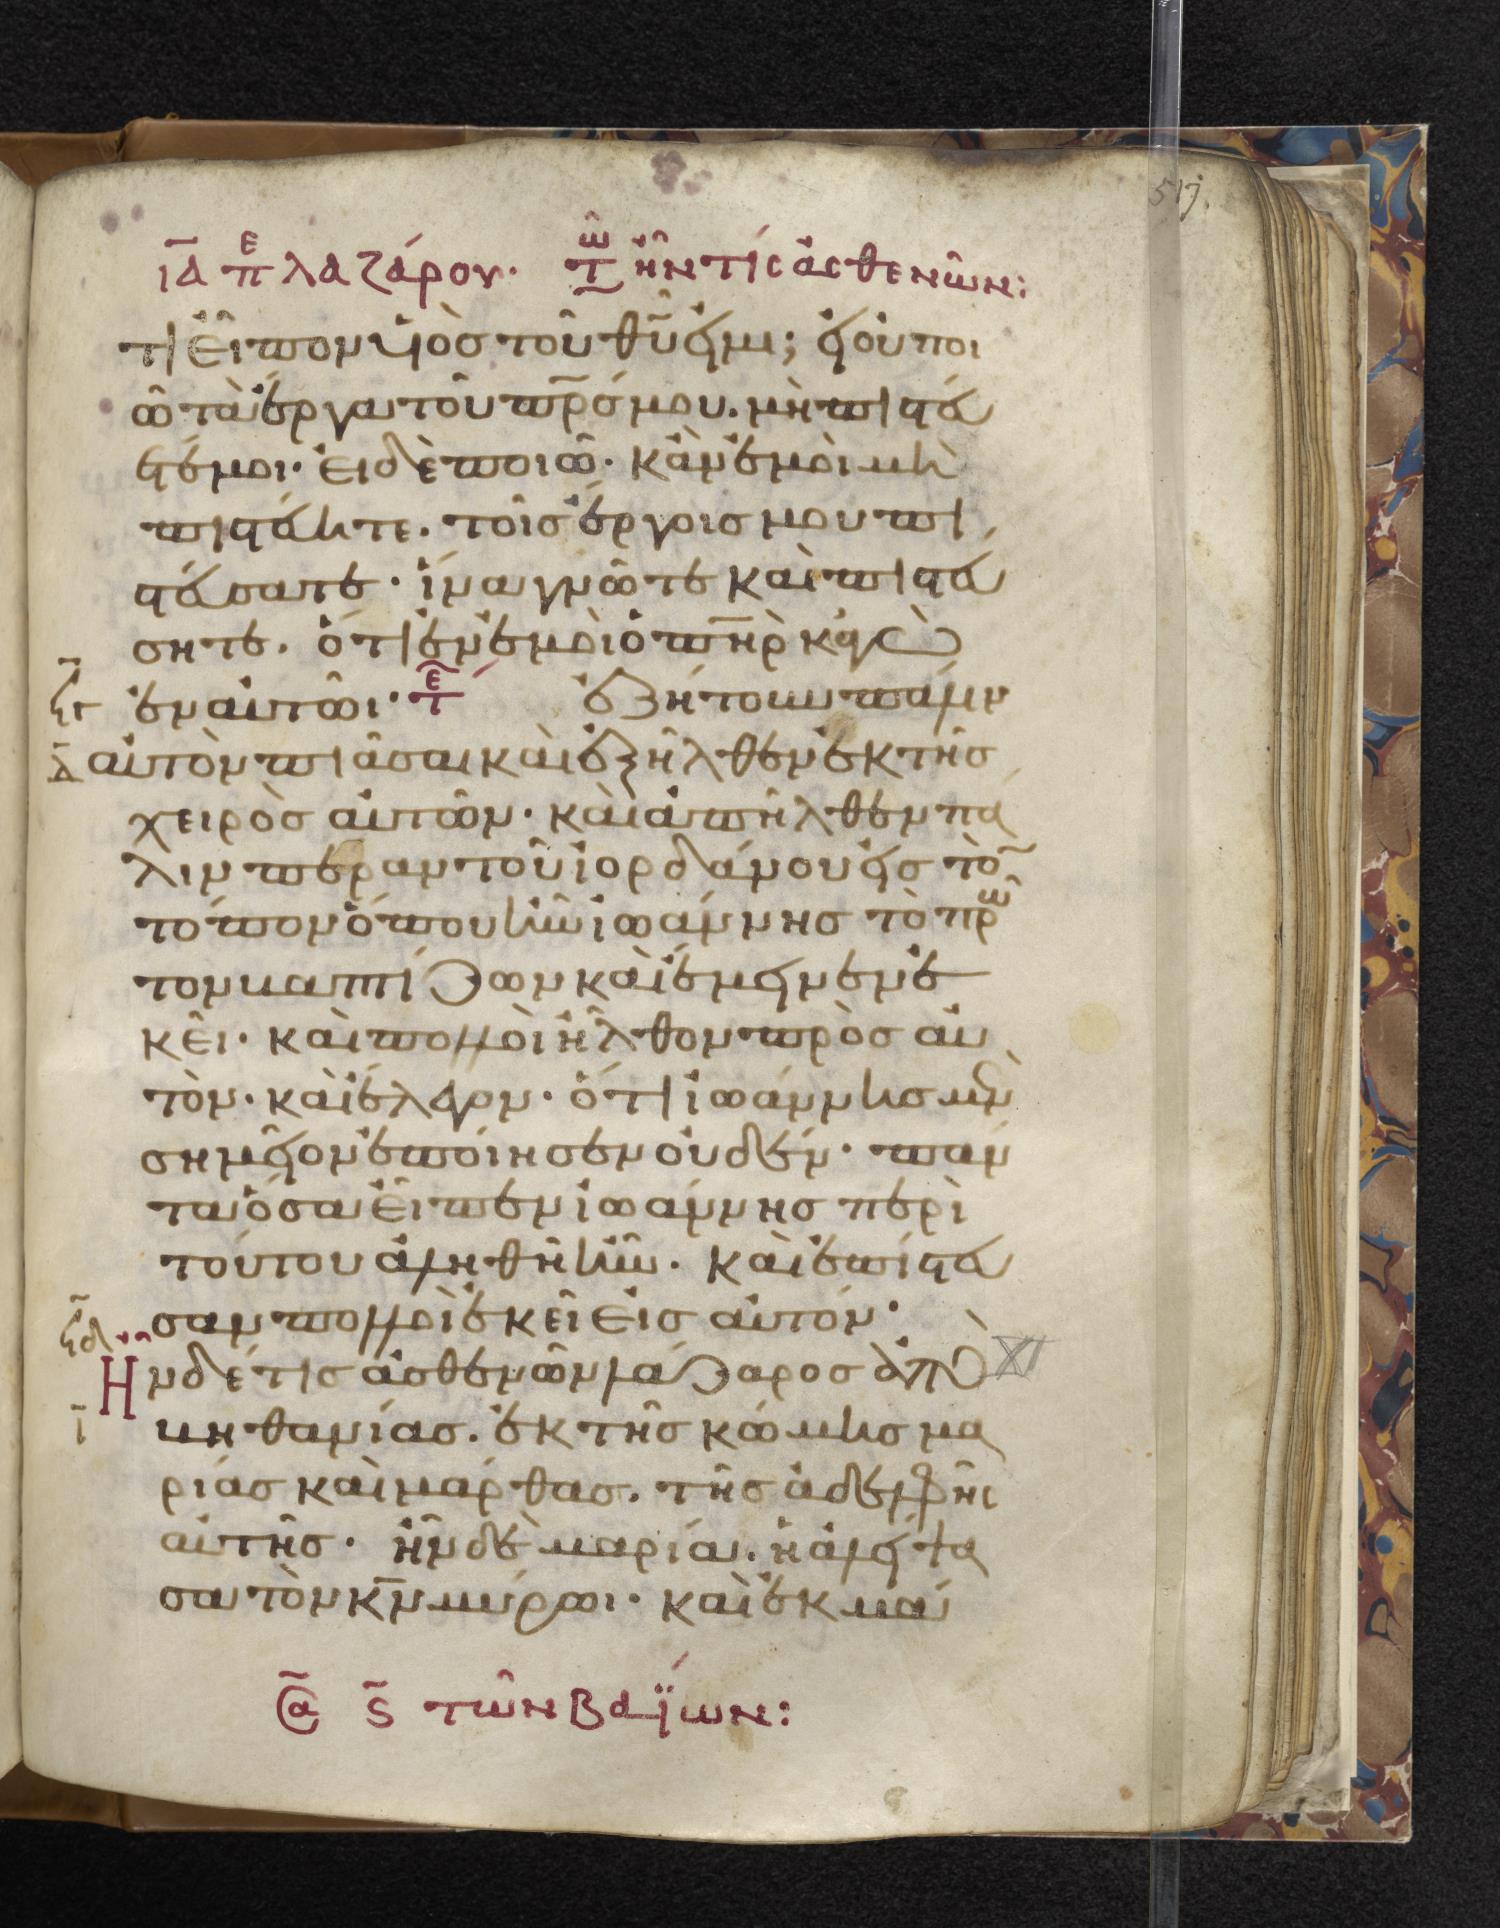 ια πε λαζάρου· τω ἦν τίς ἀσθενῶν:
τι εἶπον υἱὸσ τοῦ θυ εἰμι; εἰ οὐ ποι
ῶ τὰ ἔργα του πρσ μου. μὴ πιστεύ
ετέ μοι· εἰ δὲ ποιῶ· κἂν ἐμοὶ μὴ
πιστεύητε. τοῖσ ἔργοισ μου πι
στεύσατε· ἵνα γνῶτε καὶ πιστεύ
σητε. ὅτι ἐν ἐμοὶ ὁ πηρ κἀγὼ
ἐν αὐτῶι· τε ἐζήτουν πάλιν
αὐτὸν πιάσαι καὶ ἐξῆλθεν ἐκ τῆσ
χειρὸσ αὐτῶν· καὶ ἀπῆλθεν πά
λιν πέραν τοῦ ἰορδάνου εἰσ τὸ
τόπον ὅπου ἦν ἰωάννησ τὸ πρῶ
τον βαπτίζων καὶ ἔμεινεν ἐ
κεῖ· καὶ πολλοὶ ἦλθον πρὸσ αὐ
τὸν· καὶ ἔλεγον· ὅτι ἰωάννησ μὲν
σημεῖον ἐποίησεν οὐδέν· πάν
τα ὅσα εἶπεν ἰωάννησ περὶ
τούτου ἀληθῆ ἦν· καὶ ἐπίστευ
σαν πολλοὶ ἐκεῖ εἰσ αὐτόν·
Ἦν δέ τισ ἀσθενῶν λάζαροσ ἀπὸ XI
βηθανίασ. ἐκ τῆσ κώμησ μα
ρίασ καὶ μάρθασ. τῆσ ἀδελφῆσ
αὐτῆσ· ἦν δὲ μαρία. ἡ ἀλείψα
σα τὸν κν μύρωι· καὶ ἐκμά
α ϛ τῶν βαΐων: